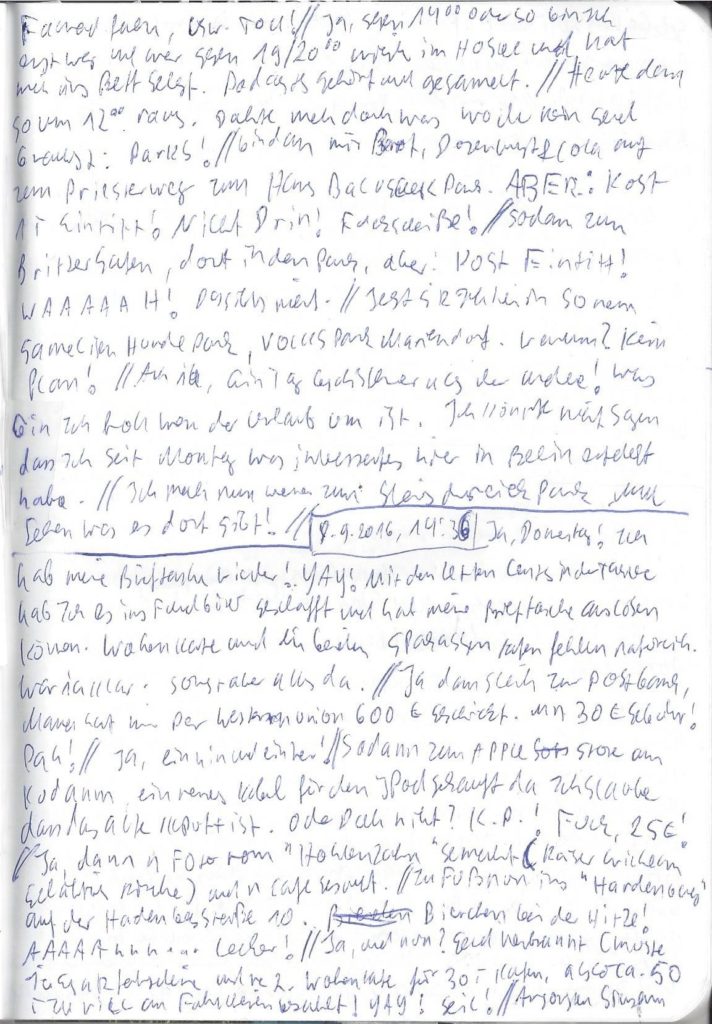 usw. Toll! // Ja, gegen 14⁰⁰ oder so bin ich
weg und war gegen 19/20⁰⁰ wieder im Hostel und hat
mich ins Bett gelegt. Podcasts gehört und gegammelt. // Heute dann
so um 12⁰⁰ raus. Dachte mich doch was wo ich kein Geld
brauchst: Parks! // Bin dann mir Brot, Dosenwurst & Cola auf
zum Priesterweg zum Hans Park. ABER: Kost
1€ Eintritt! Nicht Drin! Fuckscheiße! // Sodann zum
Britzer Garten, dort in den Park, aber: Kost Eintitt!
WAAAAAH! Das ich nicht. // Jetzt sitz ich hier in so nem
Hunde Park, Volkspark Mariendorf. Warum? Kein
Plan! // Ach ja, ein Tag beschissener als der andere! Was
bin ich froh wenn der Urlaub um ist. Ich könnte nicht sagen
dass ich seit Montag was interessantes hier in Berlin erlebt
habe. // Ich mach nun weiter zum Gleisdreieck Park und
sehen was es dort gibt! // 8.9.2016, 14:36 Ja, Donnerstag! Ich
hab meine Brieftasche wieder! YAY! Mit den letzten Cents in der Tasche
hab ich es ins Fundbüro geschafft und hab meine Brieftasche auslösen
können. Wochenkarte und die beiden Sparkassen karten fehlen natürlich.
War ja klar. Sonst aber alles da. // Ja dann gleich zur Postbank,
Mama hat mir per Westernunion 600 € geschickt. Mit 30 € Gebühr!
Pah! // Ja, ein hin und einher! // Sodann zum APPLE Store am
Kudamm, ein neues Kabel für den IPod gekauft da ich glaube
dass das alte kaputt ist. Oder Doch nicht? K.P.! Fuck, 25€!
// Ja, dann n Foto vom "Hohlenzahn" gemacht (Kaiser Wilhelm
Gedächtnis Kirche) und n Cafe gesucht. // Zu Fuß nun ins "Hardenberg"
auf der Hardenbergstraße 10. Bierchen bei der Hitze!
AAAAAhhh... Lecker! // Ja, und nun? Geld verbrannt (musste
und ne 2. Wochenkarte für 30€ kaufen, also ca. 50
€ zu viel an Fahrkarten bezahlt! YAY! Geil! //